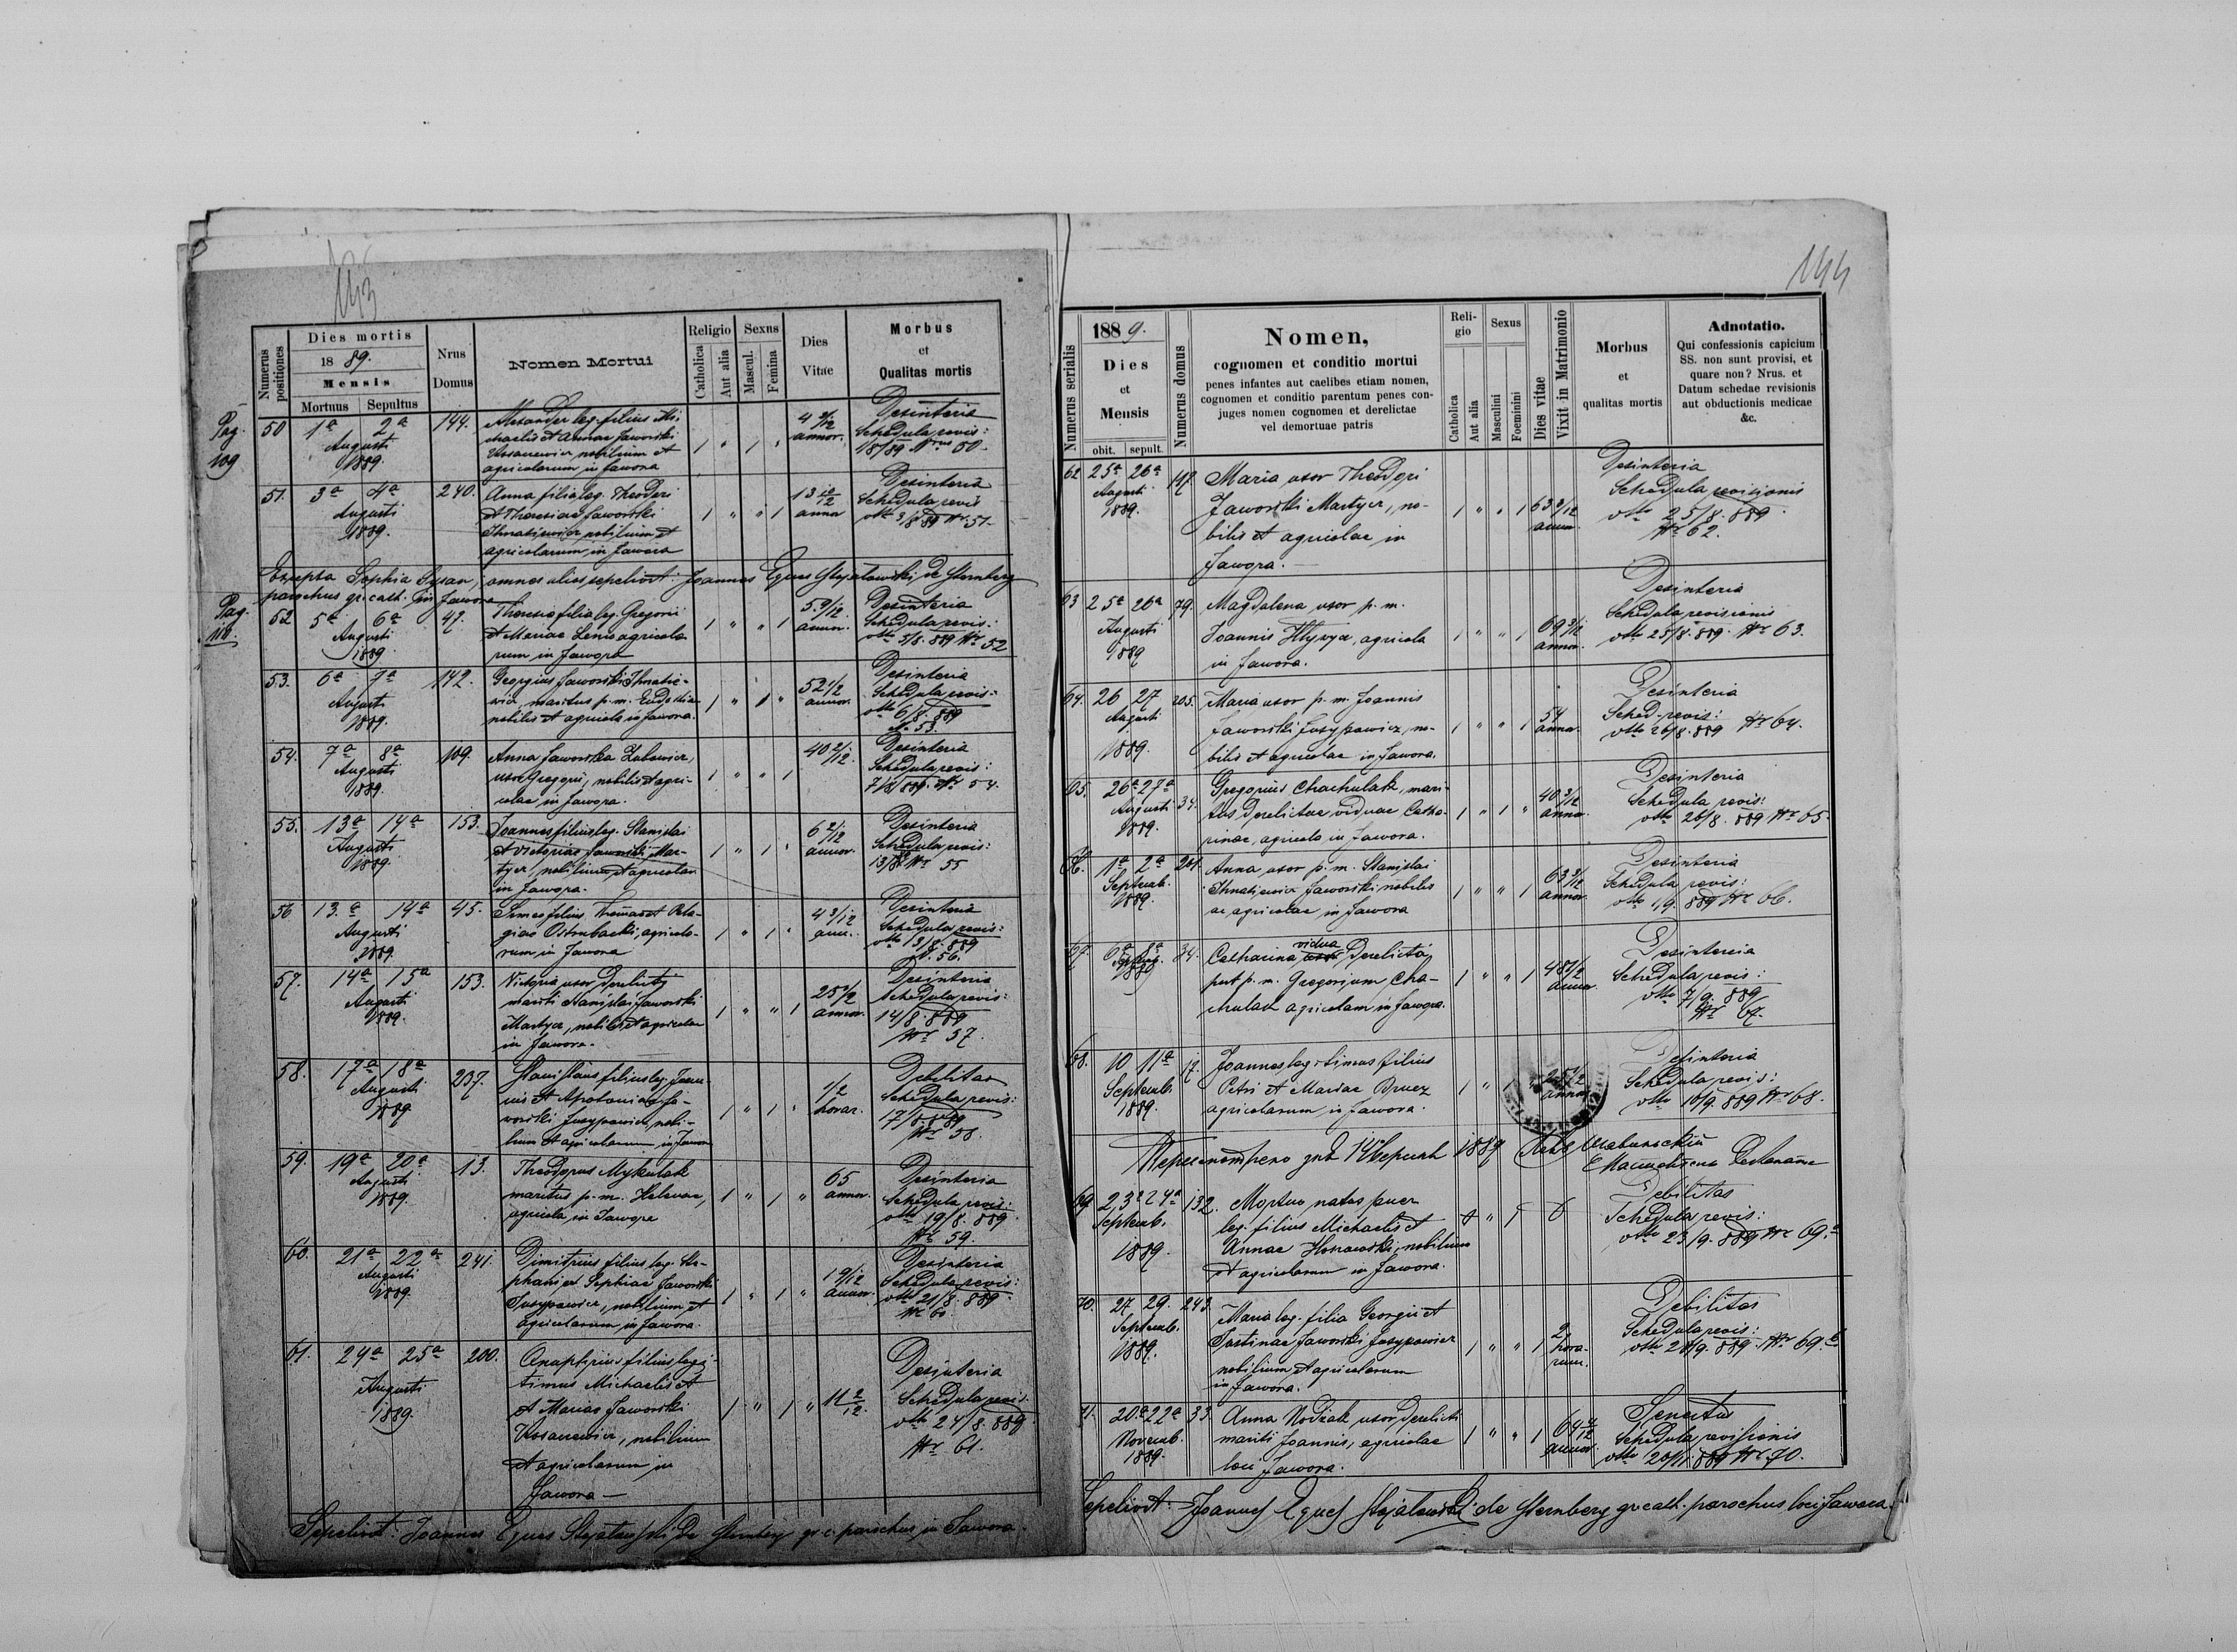 143
Numerus positiones
Dies mortis
1889.
Mensis
Mortuus Sepultus
Nrus Domus
Nomen Mortui
Religio
Catholica
Aut alia
Sexus
Mascul.
Femina
Dies Vitae
Morbus
et
Qualitas mortis
Pag. 109
50 1a 2a Augusti 1889. 144.
Alexander leg. filius Mi-
chaelis et Annae Jaworski
nobilium et
agricolarum in Jawora
4 2/12 annor.
Desinteria
Schedula revis:
1/8/89 Nrus 50.
51. 3a 4a Augusti 1889. 240.
Anna filia leg. Theodori
et Theresiae Jaworski
Ihnatiewicz nobilium et
agricolarum in Jawora
13 annor
Desinteria
Schedula revis
dtto 3/8 89 Nr. 51.
Excepta Sophia Sysan, omnes alios sepelivit: Joannes Eques Stojałowski de Sternberg
parochus gr. cath. in Jawora
Pag. 110.
52 5a 6a Augusti 1889. 47.
Theresia filia leg. Gregorii
et Mariae Lenio agricola-
rum in Jawora
5 9/12 annor.
Desinteria
Schedula revis.:
dtto 5/8. 889 Nr 52
53. 6a 7a Augusti 1889. 142.
Georgius Jaworski Ihnatie-
wicz, maritus p. m. Eudoxiae
nobilis et agricola in Jawora.
52 1/2 annor.
Desinteria
Schedula revis.
dtto 6/8. 889
Nr 53.
54. 7a 8a Augusti 1889. 109.
Anna Jaworska
uxor Gregorii, nobilis et agri-
colae in Jawora.
40 2/12.
Desinteria
Schedula revis:
7/8/889. Nr 54.
55. 13a 14a Augusti 1889. 153.
Joannes filius leg. Stanislai
et Victoriae Jaworski Mar-
tycz, nobilium et agricolar.
in Jawora.
6 2/12 annor.
Desinteria
Schedula revis:
13/8 Nr 55
56 13.a 14a Augusti 1889. 45.
filius Thomae et Pela-
giae agricola-
rum in Jawora
4 3/12 ann.
Desinteria
Schedula revis:
dtto 13/8. 889
Nr. 56.
57. 14a 15a Augusti 1889. 153.
Victoria uxor derelicti
mariti Stanislai Jaworski
Martycz, nobilis et agricolae
in Jawora.
25 1/2 annor.
Desinteria
Schedula revis:
14/8. 889
Nr 57.
58. 17a 18a Augusti 1889 237.
Stanislaus filius leg. Joan-
nis et Apoloniae Ja-
worski Jusypowicz, nobi-
lium et agricolarum in Jawora
1/2 horar.
Debilitas
Schedula revis:
17/8. 889
Nr 58.
59. 19a 20a Augusti 1889. 13.
Theodorus Mykulak
maritus p. m. Helenae,
agricola in Jawora
65 annor.
Desinteria
Schedula revis:
dtto 19/8. 889
Nr. 59.
60. 21a 22a Augusti 1889. 241.
Dimitrius filius leg. Ste-
phani et Sophiae Jaworski
Jusypowicz, nobilium et
agricolarum in Jawora.
annor.
Desinteria
Schedula revis:
dtto 21/8. 889
Nr 60.
61. 24a 25a Augusti 1889. 200.
Onuphrius filius legi-
timus Michaelis et
et Mariae Jaworski
nobilium
et agricolarum in
Jawora
11 2/12.
Desinteria
Schedula revis.
dtto 24/8. 889
Nr 61.
Sepelivit: Joannes Eques Stojałowski de Sternberg gr. c. parochus in Jawora.
144
Numerus serialis
1889.
Dies
et
Mensis
obit. sepult.
Numerus domus
Nomen,
cognomen et conditio mortui
penes infantes aut caelibes etiam nomen,
cognomen et conditio parentum penes con-
juges nomen cognomen et derelictae
vel demortuae patris
Reli-
gio
Catholica
Aut alia
Sexus
Masculini
Foeminini
Dies vitae
Vixit in Matrimonio
Morbus
et
qualitas mortis
Adnotatio.
Qui confessionis capicium
SS. non sunt provisi, et
quare non? Nrus. et
Datum schedae revisionis
aut obductionis medicae
&c.
62 25a 26a Augusti 1889. 197.
Maria uxor Theodori
Jaworski Martycz, no-
bilis et agricolae in
Jawora.
63 2/12 annor.
Desinteria
Schedula revisionis
dtto 25/8. 889
Nr 62.
63 25a 26a Augusti 1889 79.
Magdalena uxor p. m.
Joannis agricola
in Jawora.
69 3/12 annor.
Desinteria
Schedula revisionis
dtto 25/8. 889. Nr 63.
64. 26 27 Augusti 1889. 205.
Maria uxor p. m. Joannis
Jaworski Jusypowicz, no-
bilis et agricolae in Jawora.
54 annor.
Desinteria
Sched. revis:
dtto 26/8. 889 Nr 64.
65. 26a 27a Augusti 1889. 34.
Gregorius Chachulak, mari-
tus derelictae viduae Catha-
rinae, agricola in Jawora.
40 3/12 annor.
Desinteria
Schedula revis:
dtto 26/8. 889 Nr 65.
66. 1a 2a Septemb. 1889. 201.
Anna, uxor p. m. Stanislai
Ihnatiewicz Jaworski nobilis
ac agricolae in Jawora
63 3/12 annor.
Desinteria
Schedula revis:
dtto 1/9. 889 Nr 66.
67. 6a 8a 1889 34.
Catharina vidua derelicta
post p. m. Gregorium Cha-
chulak agricolam in Jawora.
48 1/2 annor.
Desinteria
Schedula revis:
dtto 7/9. 889
Nr 67.
68. 10 11a Septemb. 1889. 17.
Joannes legitimus filius
Petri et Mariae
agricolarum in Jawora.
annor
Desinteria
Schedula revis:
dtto 10/9. 889 Nr 68.
1889
69. 23a 24a Septemb. 1889. 132.
Mortuo natus puer
leg. filius Michaelis et
Annae nobilium
et agricolarum in Jawora.
Debilitas
Schedula revis:
dtto 23/9. 889 Nr 69.a
70. 27 29. Septemb. 1889. 243.
Maria leg. filia Georgii et
Justinae Jaworski Jusypowicz
nobilium et agricolarum
in Jawora.
2 hora-
rum.
Debilitas
Schedula revis:
889 Nr 69.b
71. 20a 22a Novemb. 1889. 33.
Anna uxor derelicti
mariti Joannis, agricolae
loci Jawora.
64 annor.
Senectus
Schedula revisionis
dtto 20/11 889 Nr 70.
Sepelivit: Joannes Eques Stojałowski de Sternberg gr. cath. parochus loci Jawora.